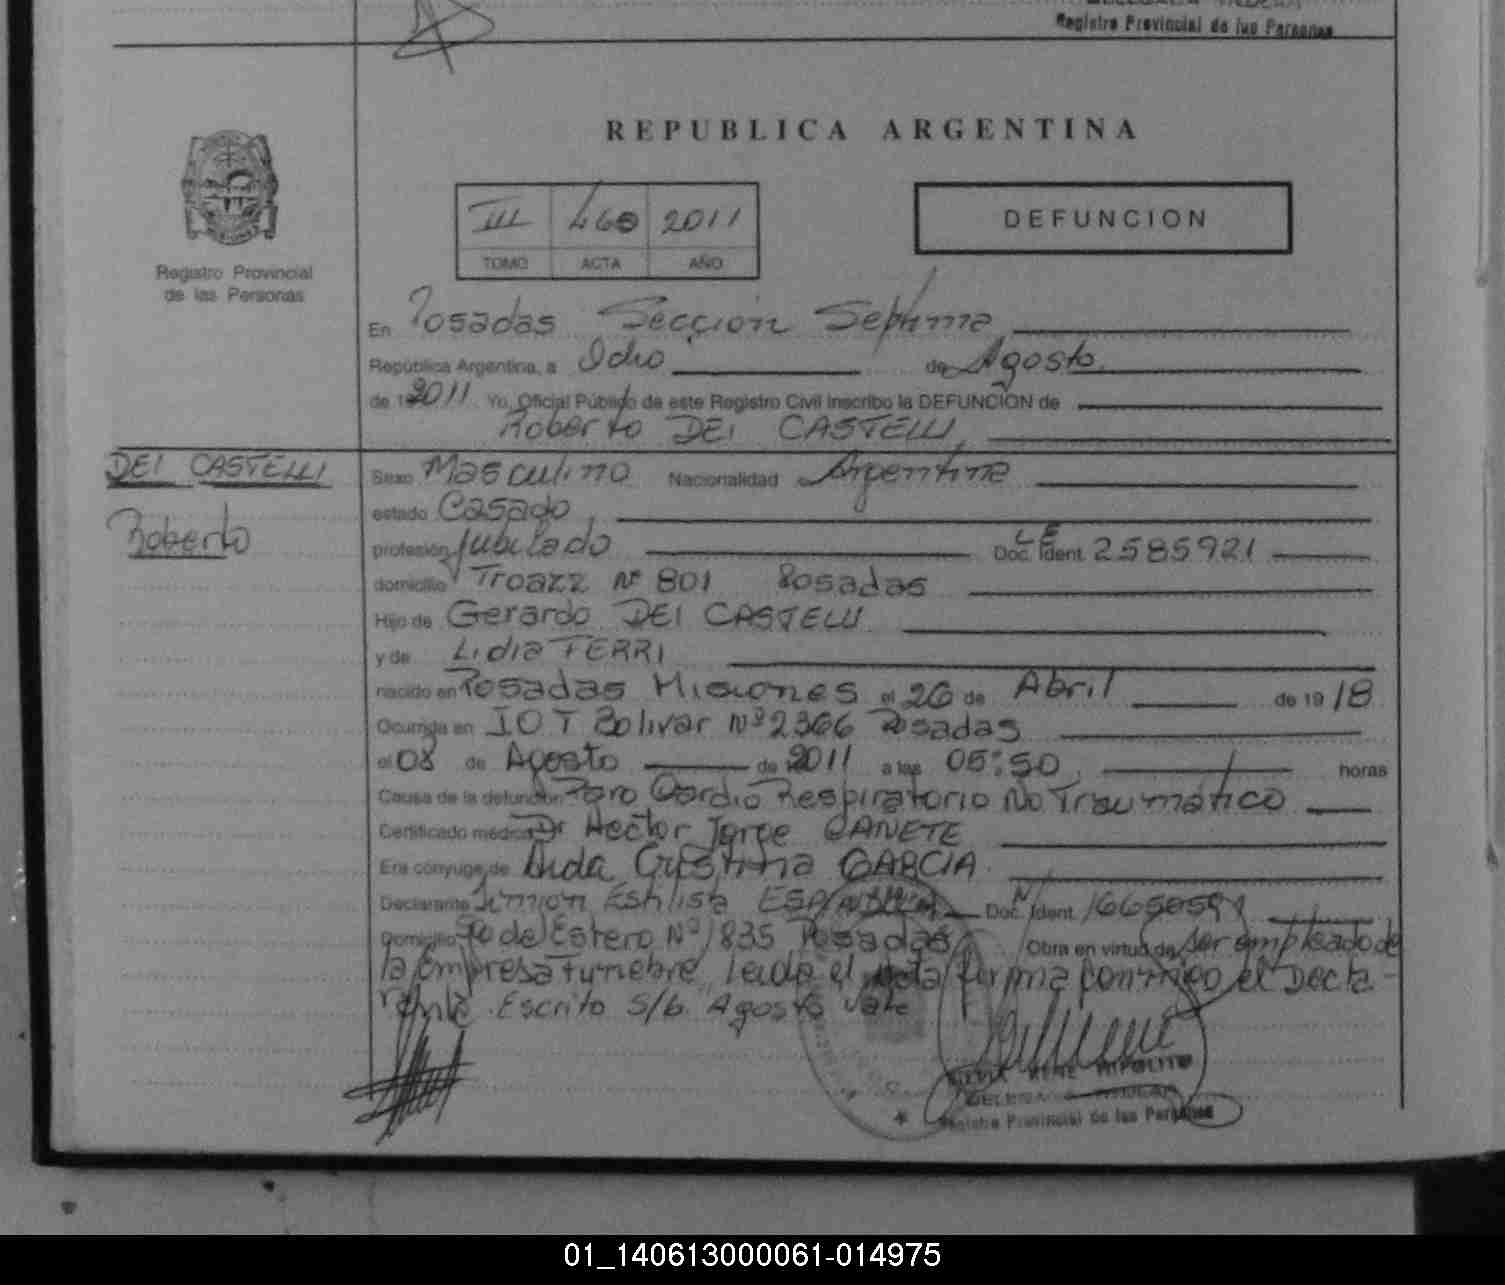 Registro Provincial de las Personas
REPUBLICA ARGENTINA
Registro Provincial
de las Personas
III 460 2011
TOMO ACTA AÑO
DEFUNCION
En Posadas Sección Septima
República Argentina, a Ocho de Agosto
de 2011 Yo, Oficial Público de este Registro Civil inscribo la DEFUNCION de
Roberto DEI CASTELLI
DEI CASTELLI
Roberto
Sexo Masculino Nacionalidad Argentina
estado Casado
profesión Jubilado Doc. Ident. LE 2585921
domicilio Troazz Nº 801 Posadas
Hijo de Gerardo DEI CASTELLI
y de Lidia FERRI
nacido en Posadas Misiones el 26 de Abril de 1918
Ocurrida en I O T Bolivar Nº 2366 Posadas
el 08 de Agosto de 2011 a las 05:50 horas
Causa de la defunción Paro Cardio Respiratorio No Traumático
Certificado médico Dr Hector Jorge CAÑETE
Era cónyuge de Aida Cristina GARCIA
Declarante Doc. Ident.
Domicilio Sgo de Estero Nº 1835 Posadas Obra en virtud de ser empleado de
la Empresa Funebre, Leida el Acta firma conmigo el Decla-
rante. Escrito S/b. Agosto Vale
RENE HIPOLITO
Registro Provincial de las Personas
01_140613000061-014975